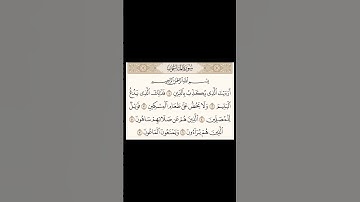 سورة الماعون
بسم الله الرحمن الرحيم
أرءيت الذى يكذب بالدين ١ فذلك الذى يدع
اليتيم ٢ ولا يحض على طعام المسكين ٣ فويل
للمصلين ٤ الذين هم عن صلاتهم ساهون ٥
الذين هم يراءون ٦ ويمنعون الماعون ٧